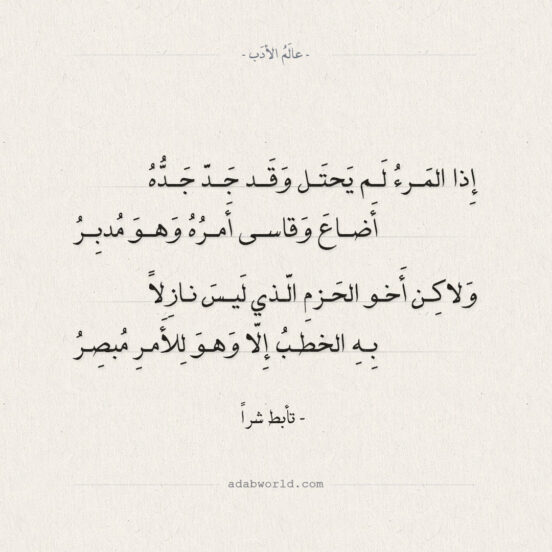 - عالَمُ الأدَب -
إِذا المَـرءُ لَـم يَحتَـل وَقَـد جَـدّ جَـدُّهُ
أَضـاعَ وَقاسـى أَمـرُهُ وَهـوَ مُدبِـرُ
وَلاكِـن أَخـو الحَـزمِ الّـذي لَيـسَ نـازِلاً
بِـهِ الخطـبُ إِلّا وَهـوَ لِلأَمـرِ مُبصِـرُ
- تأبط شراً
adabworld.com